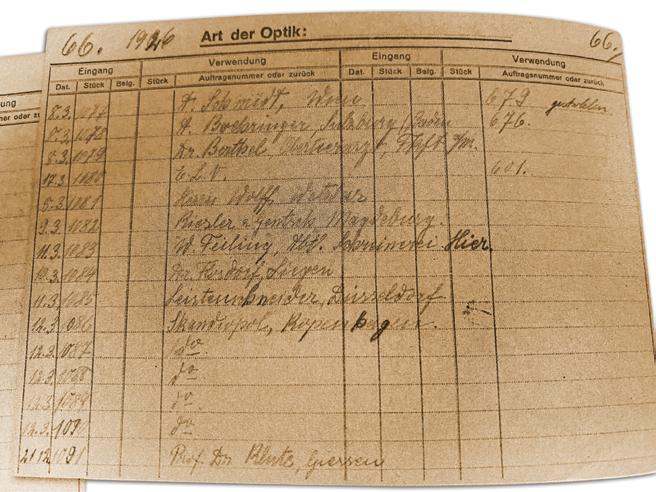 66. 1926 Art der Optik: 66.
Eingang Verwendung Eingang Verwendung
Dat. Stück Belg. Stück Auftragsnummer oder zurück Dat. Stück Belg. Stück Auftragsnummer oder zurück
8.3. 1077 Schmidt, 679 gestohlen
1078 Boehringer, Sulzburg/Baden 676.
1079 Dr. Berthel,
17.3 1080 E.L.V. 601.
5.3. 1081 Herrn Wolff, Wetzlar
9.3. 1082 Magdeburg.
11.3. 1083 W. Teiling, Abtl. Schreinerei Hier.
10.3. 1084 Dr. Siegen
11.3. 1085 Leistenschneider, Düsseldorf
12.3. 1086 Skandiopol, Kopenhagen.
12.3. 1087 do.
12.3. 1088 do
12.3. 1089 do.
12.3. 1090 do
1091 Prof. Dr. Giessen